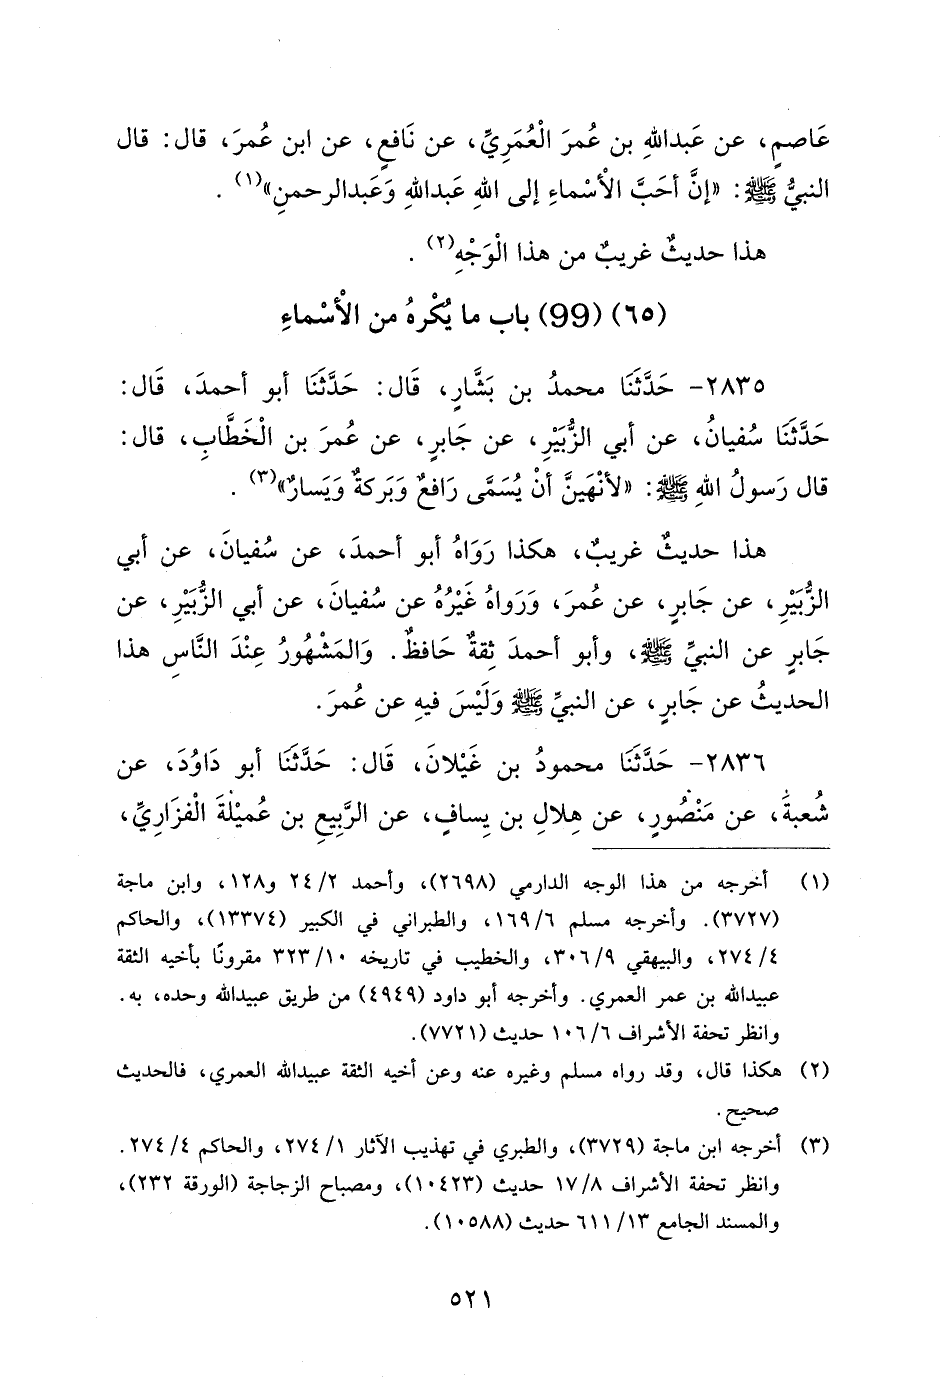 عَاصمٍ، عن عَبداللهِ بن عُمرَ الْعُمَرِيِّ، عن نَافعٍ، عن ابن عُمرَ، قال: قال
النبيُّ ﷺ: «إنَّ أحَبَّ الْأسْماءِ إلى اللهِ عَبداللهِ وَعَبدالرحمنِ»(١) .
هذا حديثٌ غريبٌ من هذا الْوَجْهِ(٢) .
(٦٥) (99) باب ما يُكْرهُ من الْأسْماءِ
٢٨٣٥- حَدَّثَنَا محمدُ بن بَشَّارٍ، قَال: حَدَّثَنَا أبو أحمدَ، قَال:
حَدَّثَنَا سُفيانُ، عن أبي الزُّبَيْرِ، عن جَابرٍ، عن عُمرَ بن الْخَطَّابِ، قال:
قال رَسولُ اللهِ ﷺ: «لأنْهَينَّ أنْ يُسَمَّى رَافعٌ وَبَركةٌ وَيَسارٌ»(٣) .
هذا حديثٌ غريبٌ، هكذا رَوَاهُ أبو أحمدَ، عن سُفيانَ، عن أبي
الزُّبَيْرِ، عن جَابرٍ، عن عُمرَ، وَرَواهُ غَيْرُهُ عن سُفيانَ، عن أبي الزُّبَيْرِ، عن
جَابرٍ عن النبيِّ ﷺ، وأبو أحمدَ ثِقةٌ حَافظٌ. وَالمَشْهُورُ عِنْدَ النَّاسِ هذا
الحديثُ عن جَابرٍ، عن النبيِّ ﷺ وَلَيْسَ فيهِ عن عُمرَ.
٢٨٣٦- حَدَّثَنَا محمودُ بن غَيْلانَ، قَال: حَدَّثَنَا أبو دَاوُدَ، عن
شُعبةَ، عن مَنْصُورٍ، عن هِلالِ بن يِسافٍ، عن الرَّبِيعِ بن عُمَيْلةَ الْفزَارِيِّ،
(١) أخرجه من هذا الوجه الدارمي (٢٦٩٨)، وأحمد ٢/ ٢٤ و١٢٨، وابن ماجة
(٣٧٢٧). وأخرجه مسلم ٦/ ١٦٩، والطبراني في الكبير (١٣٣٧٤)، والحاكم
٤/ ٢٧٤، والبيهقي ٩/ ٣٠٦، والخطيب في تاريخه ١٠/ ٣٢٣ مقرونًا بأخيه الثقة
عبيدالله بن عمر العمري. وأخرجه أبو داود (٤٩٤٩) من طريق عبيدالله وحده، به.
وانظر تحفة الأشراف ٦/ ١٠٦ حديث (٧٧٢١).
(٢) هكذا قال، وقد رواه مسلم وغيره عنه وعن أخيه الثقة عبيدالله العمري، فالحديث
صحيح.
(٣) أخرجه ابن ماجة (٣٧٢٩)، والطبري في تهذيب الآثار ١/ ٢٧٤، والحاكم ٤/ ٢٧٤.
وانظر تحفة الأشراف ٨/ ١٧ حديث (١٠٤٢٣)، ومصباح الزجاجة (الورقة ٢٣٢)،
والمسند الجامع ١٣/ ٦١١ حديث (١٠٥٨٨).
٥٢١